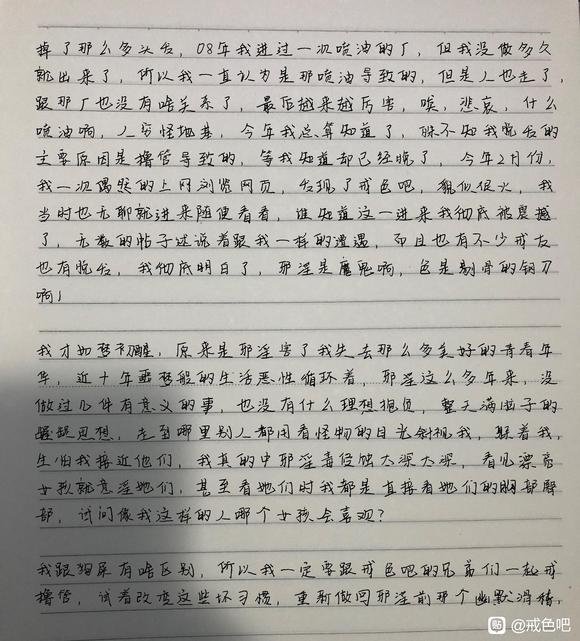 掉了那么多头发，08年我进过一次喷油的厂，但我没做多久
就出来了，所以我一直认为是那喷油导致的，但是人也走了，
跟那厂也没有啥关系了，最后越来越厉害，唉，悲哀，什么
喷油啊，人穷怪地基，今年我总算知道了，殊不知我脱发的
主要原因是撸管导致的，等我知道却已经晚了，今年2月份，
我一次偶然的上网浏览网页，发现了戒色吧，貌似很火，我
当时也无聊就进来随便看看，谁知道这一进来我彻底被震撼
了，无数的帖子述说着跟我一样的遭遇，而且也有不少戒友
也有脱发，我彻底明白了，邪淫是魔鬼啊，色是剔骨的钢刀
啊！
我才如梦初醒，原来是邪淫害了我失去那么多美好的青春年
华，近十年噩梦般的生活恶性循环着，邪淫这么多年来，没
做过几件有意义的事，也没有什么理想抱负，整天满脑子的
龌龊思想，走到哪里别人都用看怪物的目光斜视我，躲着我，
生怕我接近他们，我真的中邪淫毒侵蚀太深太深，看见漂亮
女孩就意淫她们，甚至看她们时我都是直接看她们的胸部臀
部，试问像我这样的人哪个女孩会喜欢？
我跟狗屎有啥区别，所以我一定要跟戒色吧的兄弟们一起戒
撸管，试着改变这些坏习惯，重新做回邪淫前那个幽默滑稽，
贴 @戒色吧